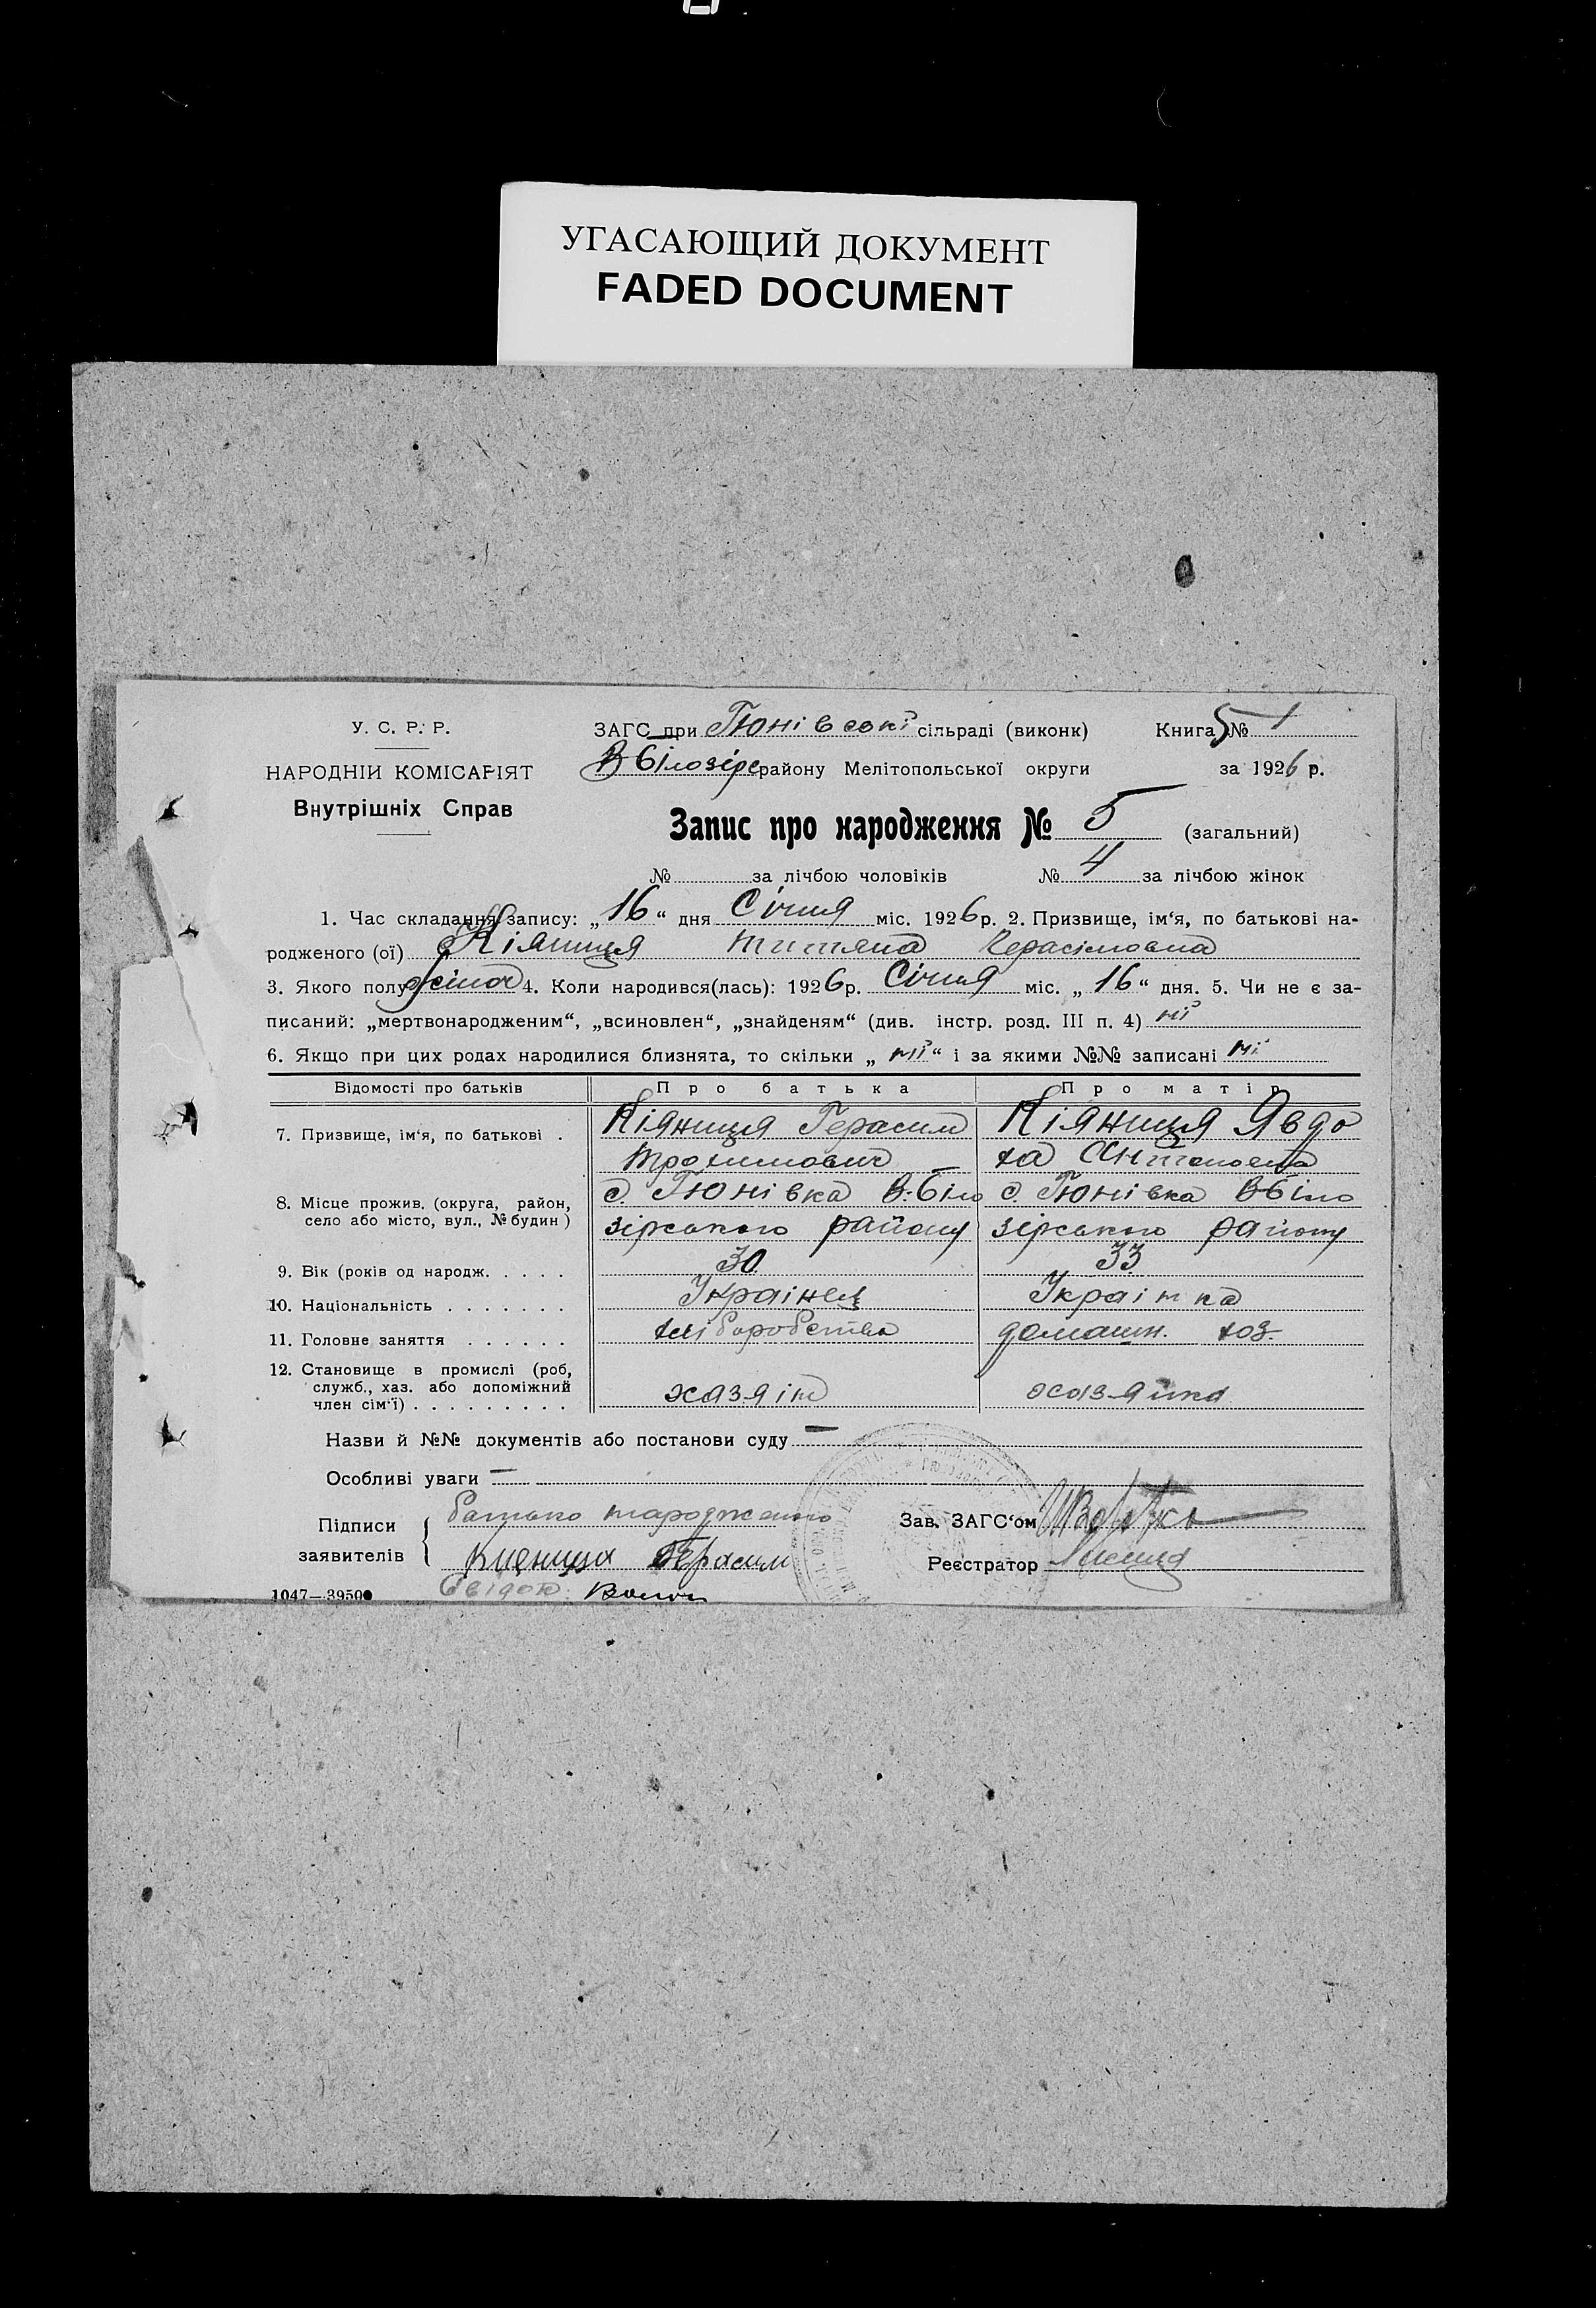 УГАСАЮЩИЙ ДОКУМЕНТ
FADED DOCUMENT
У. С. Р. Р.
НАРОДНІЙ КОМІСАРІЯТ
Внутрішніх Справ
ЗАГС при Гюнівскі сільраді (виконк) Книга 5 № 1
В Білозірс району Мелітопольської округи за 1926 р.
Запис про народження № 5 (загальний)
№ за лічбою чоловіків № 4 за лічбою жінок
1. Час складання запису: „16“ дня Січня міс. 1926 р. 2. Призвище, ім‘я, по батькові на-
родженого (ої) Кіяниця Титяна Герасімовна
3. Якого полу жіноч 4. Коли народився(лась): 1926 р. Січня міс. „16“ дня. 5. Чи не є за-
писаний: „мертвонародженим“, „всиновлен“, „знайденям“ (див. інстр. розд. III п. 4) ні
6. Якщо при цих родах народилися близнята, то скільки „ні“ і за якими №№ записані ні
Відомості про батьків Про батька Про матір
7. Призвище, ім‘я, по батькові . Кіяниця Герасим Кіяниця Явдо
Трохимович ха Антоновна
8. Місце прожив. (округа, район, с. Гюнівка В-Біло с. Гюнівка В-Біло
село або місто, вул., № будин) зірського району зірського району
9. Вік (років од народж. . . . . 30 33
10. Національність . . . . . . . Українец Українка
11. Головне заняття . . . . . . хліборобство домашн. хоз.
12. Становище в промислі (роб,
служб., хаз. або допоміжний хазяін хазяйка
член сім‘ї) . . . . . . . . .
Назви й №№ документів або постанови суду —
Особливі уваги —
Підписи батько народженого Зав. ЗАГС‘ом
заявителів Кисница Герасим Реєстратор
1047—39500 Свідок